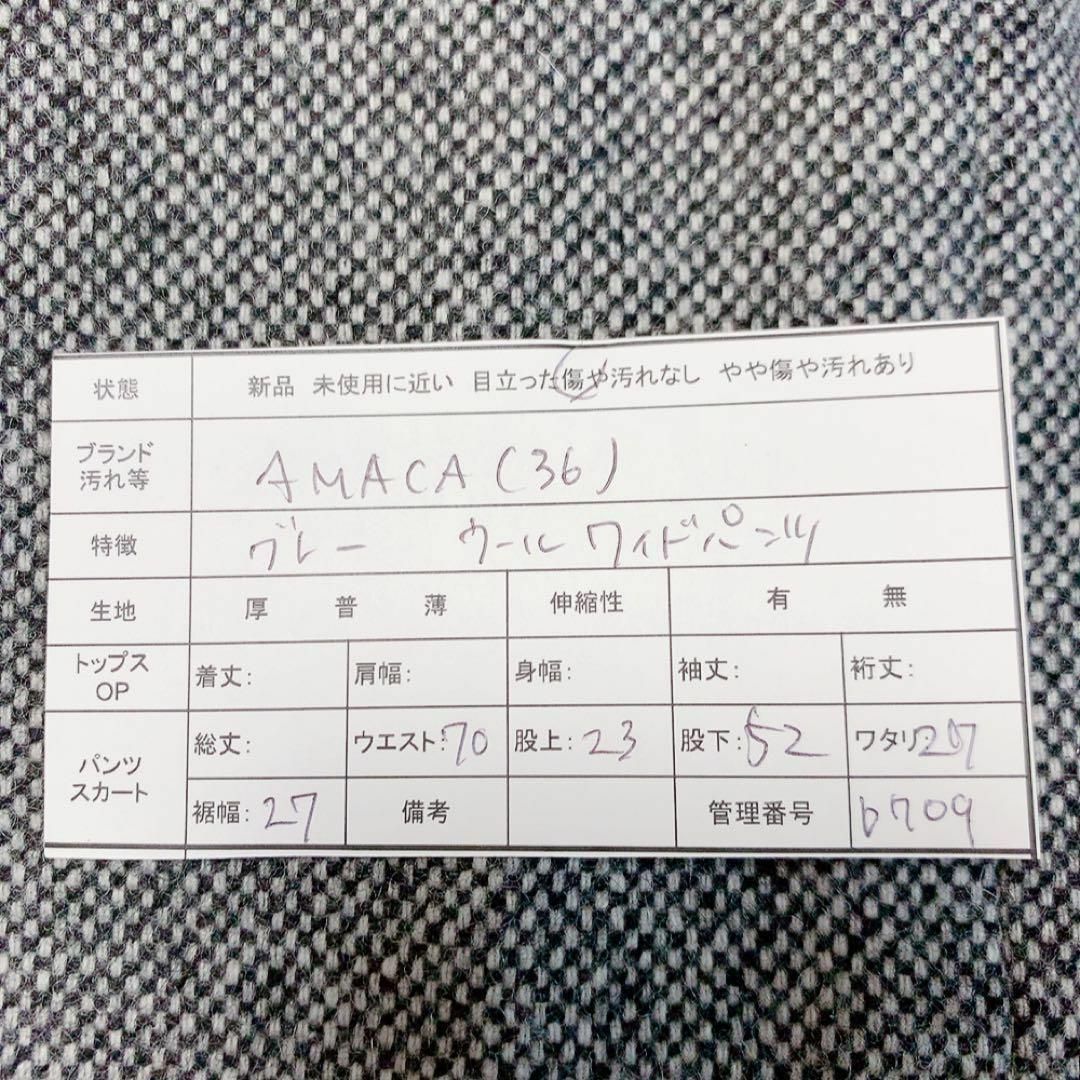 状態 新品 未使用に近い 目立った傷や汚れなし やや傷や汚れあり
ブランド
汚れ等 AMACA (36)
特徴 グレー ウール ワイドパンツ
生地 厚 普 薄 伸縮性 有 無
トップス
OP 着丈: 肩幅: 身幅: 袖丈: 裄丈:
パンツ
スカート 総丈: ウエスト:70 股上:23 股下:52 ワタリ:27
裾幅:27 備考 管理番号 b709